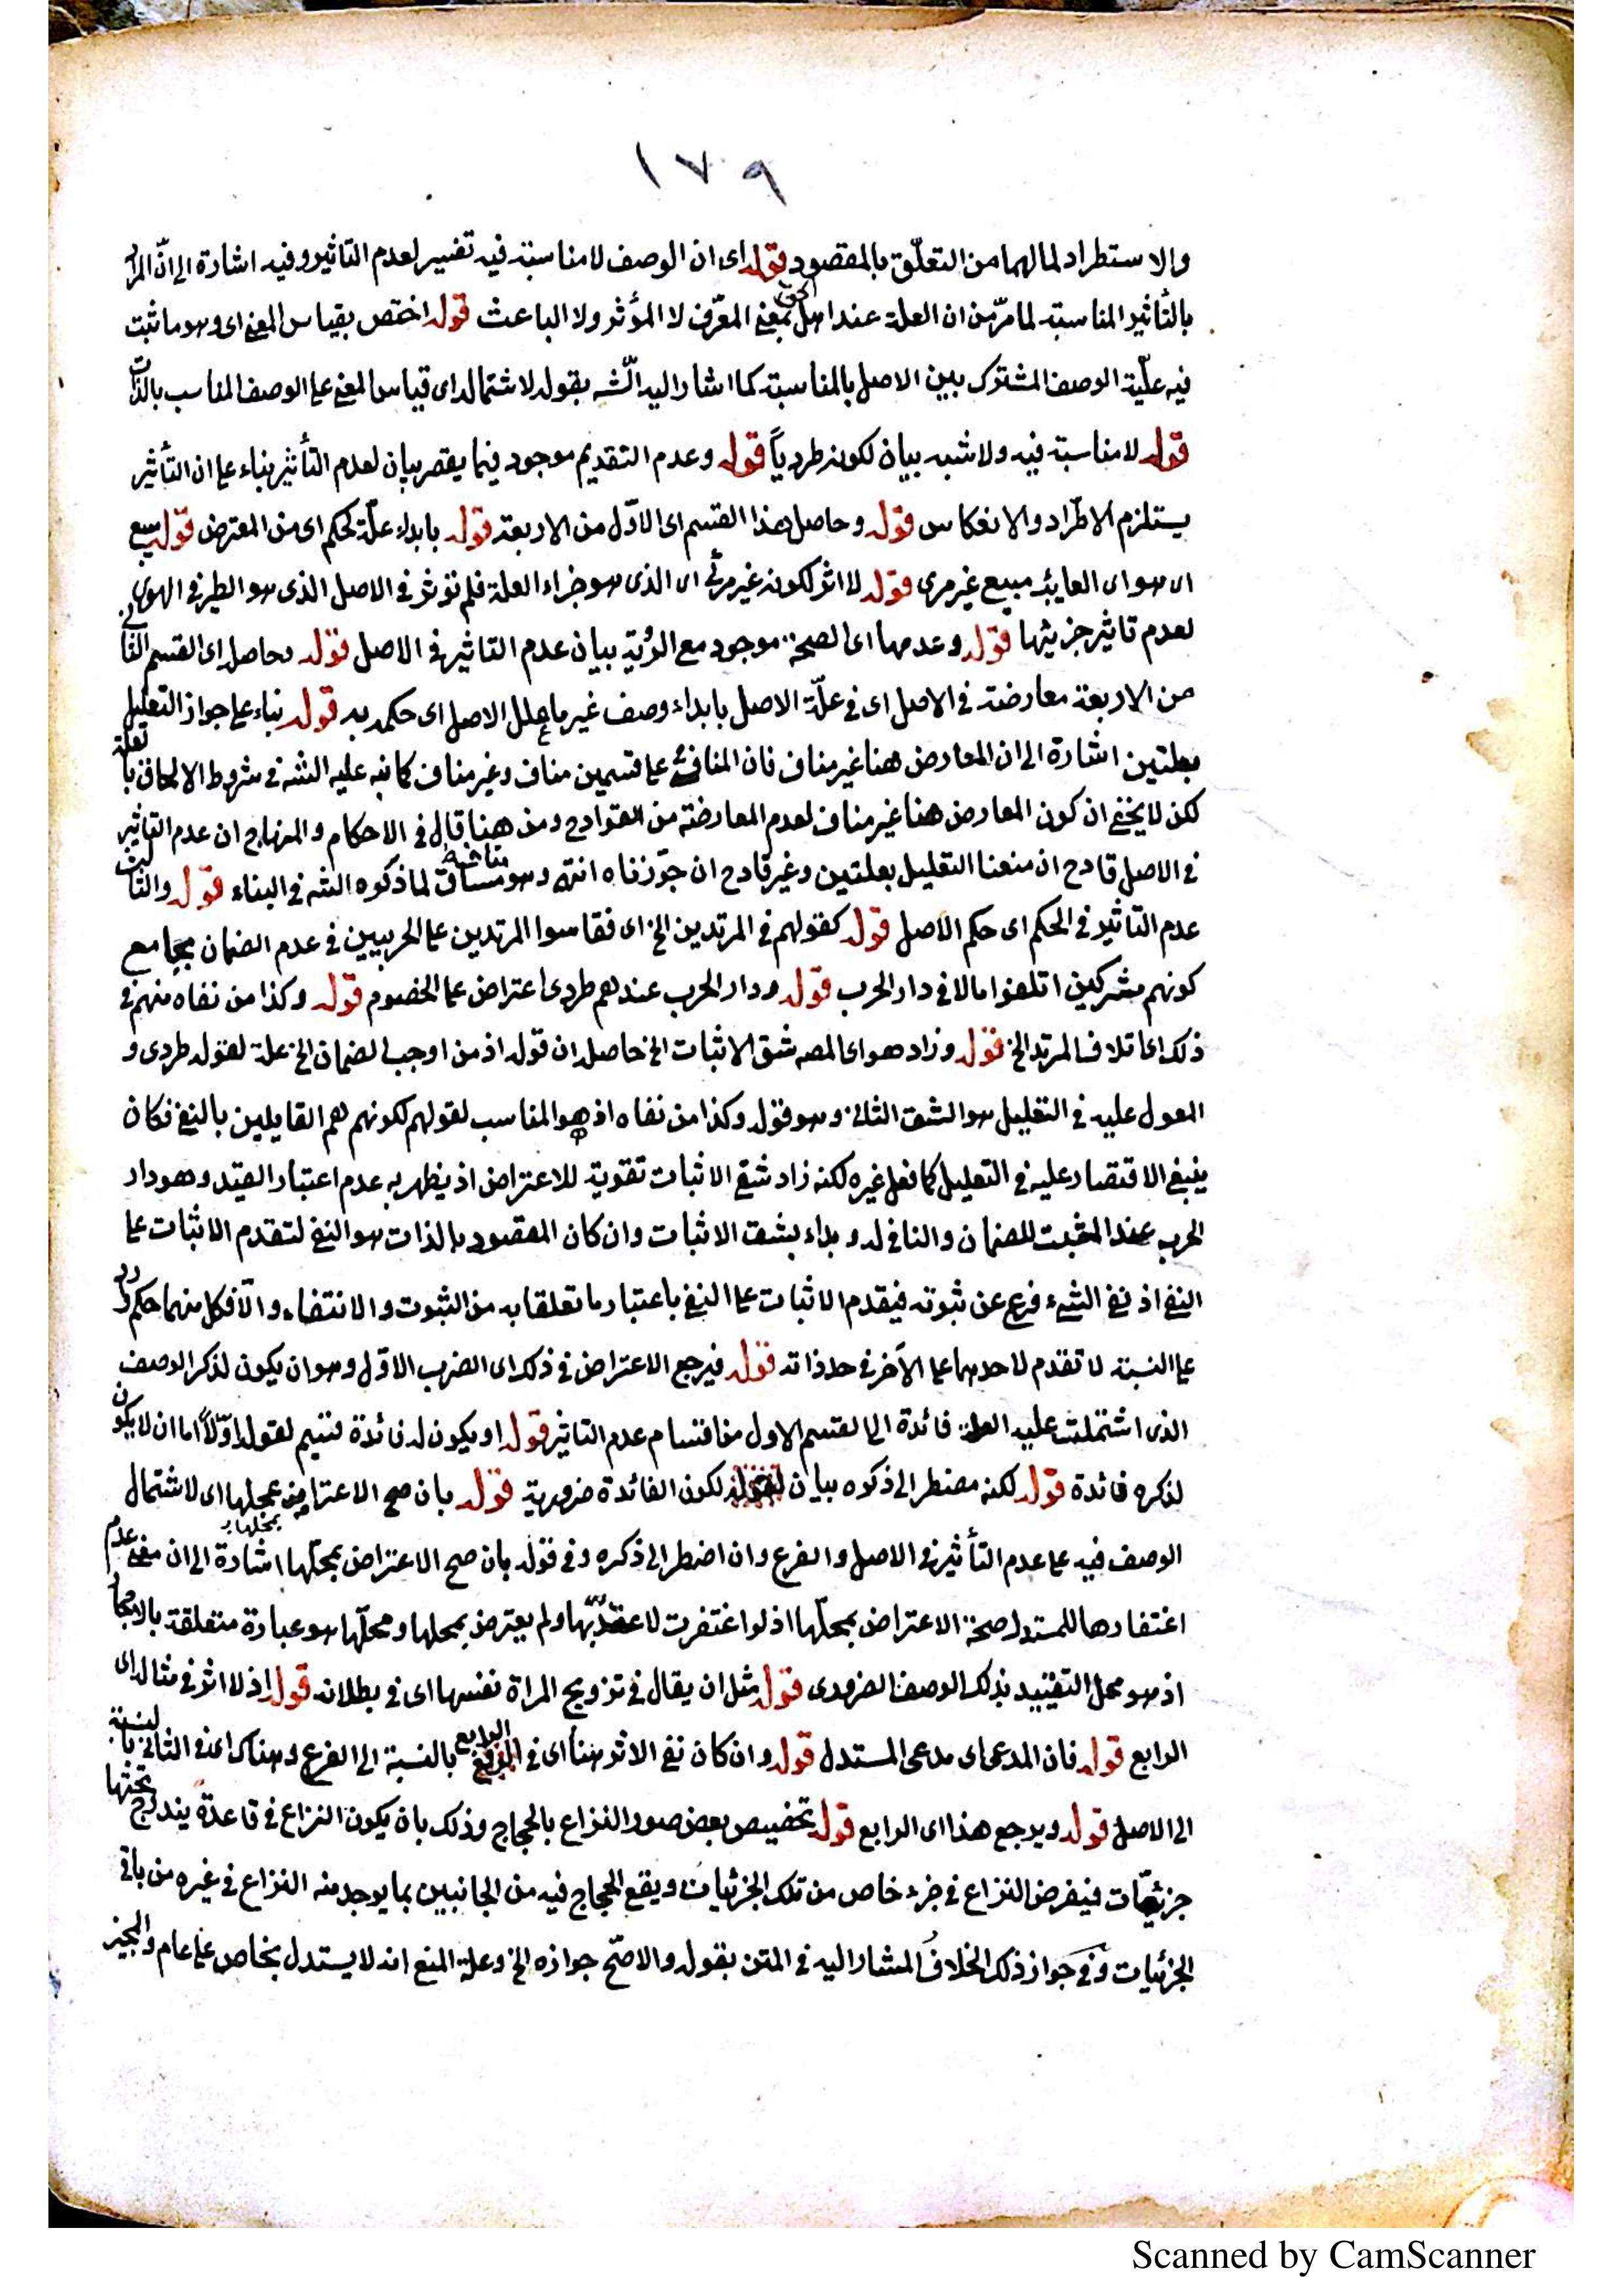 ١٧٩
والاستطراد لما لهما من التعلّق بالمقصود قوله اى ان الوصف لا مناسبة فيه تفسير لعدم التاثير وفيه اشارة الى انّ المراد
بالتأثير المناسبة لما مرّ من ان العلة عند اهل الحق بمعنى المعرّف لا المؤثر ولا الباعث قوله اختص بقياس المعنى اى وهو ما ثبت
فيه علّية الوصف المشترك بين الاصل بالمناسبة كما اشار اليه الشه بقوله لاشتماله اى قياس المعنى على الوصف المناسب بالذات
قوله لا مناسبة فيه ولا شبه بيان لكونه طردياً قوله وعدم التقديم موجود فيما يقصر بيان لعدم التأثير بناء على ان التأثير
يستلزم الاطّراد والانعكاس قوله وحاصل هذا القسم اى الاوّل من الاربعة قوله بابداء علّة لحكم اى من المعترض قوله مبيع
اى هو اى الغايب مبيع غير مرى قوله لا اثر لكونه غير مرئى اى الذى هو جزاء العلة فلم تؤثر فى الاصل الذى هو الطير فى الهوى
لعدم تاثير جزئيها قوله وعدمها اى الصحة موجود مع الرؤية بيان عدم التاثير فى الاصل قوله وحاصله اى القسم الثانى
من الاربعة معارضة فى الاصل اى فى علّة الاصل بابداء وصف غير ما علل الاصل اى حكمه به قوله بناء على جواز التعليل
بعلتين اشارة الى ان المعارض هنا غير مناف فان المنافى على قسمين مناف وغير مناف كما نبه عليه الشه فى شروط الالحاق بالعلة
لكن لا يخفى ان كون المعارض هنا غير مناف لعدم المعارضة من القوادح ومن هنا قال فى الاحكام والمنهاج ان عدم التاثير
فى الاصل قادح ان منعنا التعليل بعلتين وغير قادح ان جوّزناه انتهى وهو مساق لما ذكره الشه فى البناء قوله والثالث
عدم التاثير فى الحكم اى حكم الاصل قوله كقولهم فى المرتدين الخ اى فقاسوا المرتدين على الحربيين فى عدم الضمان بجامع
كونهم مشركين اتلفوا مالا فى دار الحرب قوله ودار الحرب عندهم طردى اعتراض على الخصوم قوله وكذا من نفاه منهم فى
ذلك اى اتلاف المرتد الخ قوله وزاد هو اى المصه شق الاثبات الخ حاصله ان قوله اذ من اوجب الضمان الخ علة لقوله طردى و
المعول عليه فى التعليل هو الشق الثانى وهو قوله وكذا من نفاه اذ هو المناسب لقولهم لكونهم هم القايلين بالنفى فكان
ينبغى الاقتصار عليه فى التعليل كما فعل غيره لكنه زاد شق الاثبات تقوية للاعتراض اذ يظهر به عدم اعتبار القيد وهو دار
الحرب عند المثبت للضمان والنافى له وبداء بشق الاثبات وان كان المقصود بالذات هو النفى لتقدم الاثبات على
النفى اذ نفى الشىء فرع عن ثبوته فيقدم الاثبات على النفى باعتبار ما تعلقا به من الثبوت والانتفاء والّا فكل منهما حكم ورد
على النسبة لا تقدم لاحدهما على الآخر فى حد ذاته قوله فيرجع الاعتراض فى ذلك اى الضرب الاوّل وهو ان يكون لذكر الوصف
الذى اشتملت عليه العلة فائدة الى القسم الاول من اقسام عدم التاثير قوله او يكون له فائدة قسيم لقوله اوّلاً اما ان لا يكون
لذكره فائدة قوله لكنه مضطر الى ذكره بيان لكون الفائدة ضرورية قوله بان صح الاعتراض بمحلها اى لاشتمال
الوصف فيه على عدم التأثير فى الاصل والفرع وان اضطر الى ذكره وفى قوله بان صح الاعتراض بمحلّها اشارة الى ان معنى عدم
اغتفارها للمستدل صحة الاعتراض بمحلّها اذ لو اغتفرت لاعتدّ بها ولم يعترض بمحلها ومحلّها هو عبارة متعلقة بالاحجار
اذ هو محل التقييد بذلك الوصف الضرورى قوله مثل ان يقال فى تزويج المراة نفسها اى فى بطلانه قوله اذ لا اثر فى مثاله اى
الرابع قوله فان المدعى اى مدعى المستدل قوله وان كان نفى الاثر هنا اى فى الرابع بالنسبة الى الفرع وهناك اى فى الثانى بالنسبة
الى الاصل قوله ويرجع هذا اى الرابع قوله تخصيص بعض صور النزاع بالحجاج وذلك بان يكون النزاع فى قاعدة يندرج تحتها
جزئيّات فيفرض النزاع فى جزء خاص من تلك الجزئيات ويقع الحجاج فيه من الجانبين بما يوجد منه النزاع فى غيره من باقى
الجزئيات وفى جواز ذلك الخلاف المشار اليه فى المتن بقوله والاصّح جوازه الخ وعلة المنع انه لا يستدل بخاص على عام والمجيز
Scanned by CamScanner